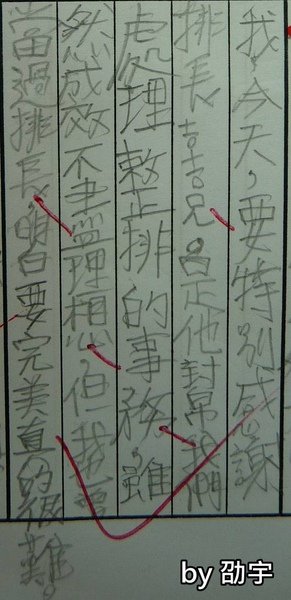 我，今天，要特別感謝
排長吉吉兄。是他幫我們
處理整排的事務，雖
然成效不盡理想，但我也曾
當過排長，明白要完美真的很難。
by 劭宇